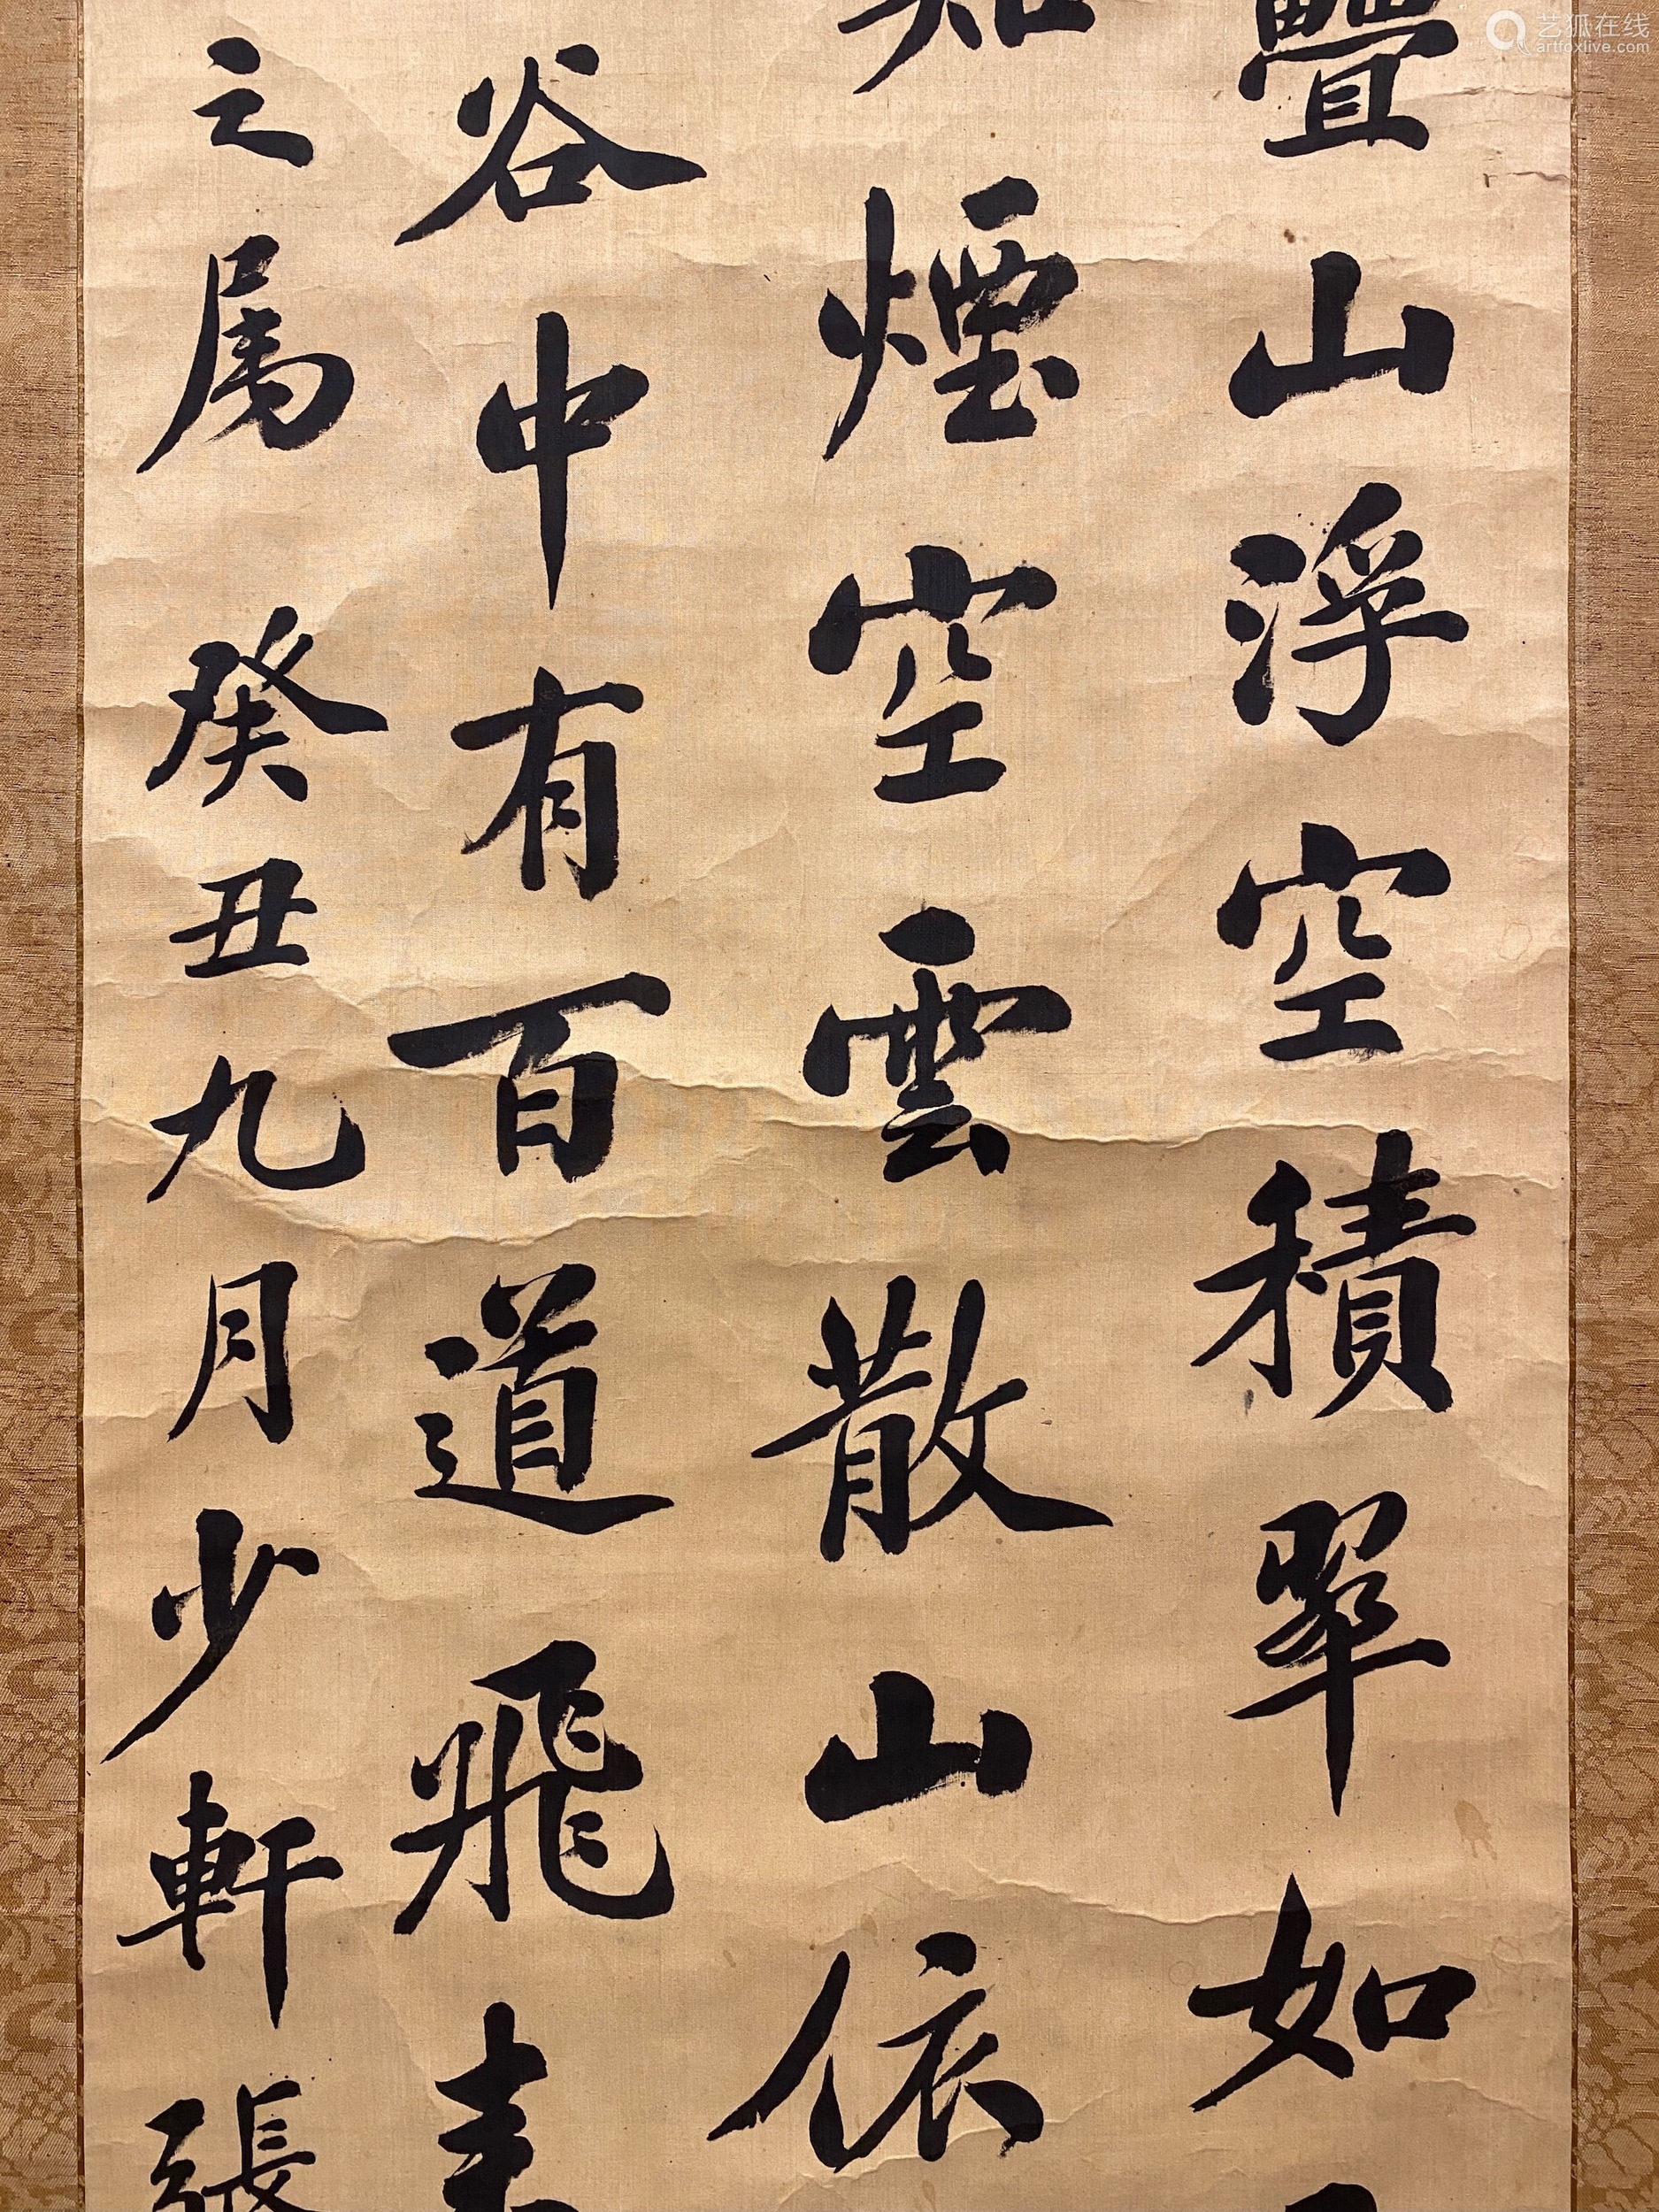 疊山浮空積翠如
知煙空雲散山依
谷中有百道飛
之属 癸丑九月少軒張
艺狐在线
artfoxlive.com